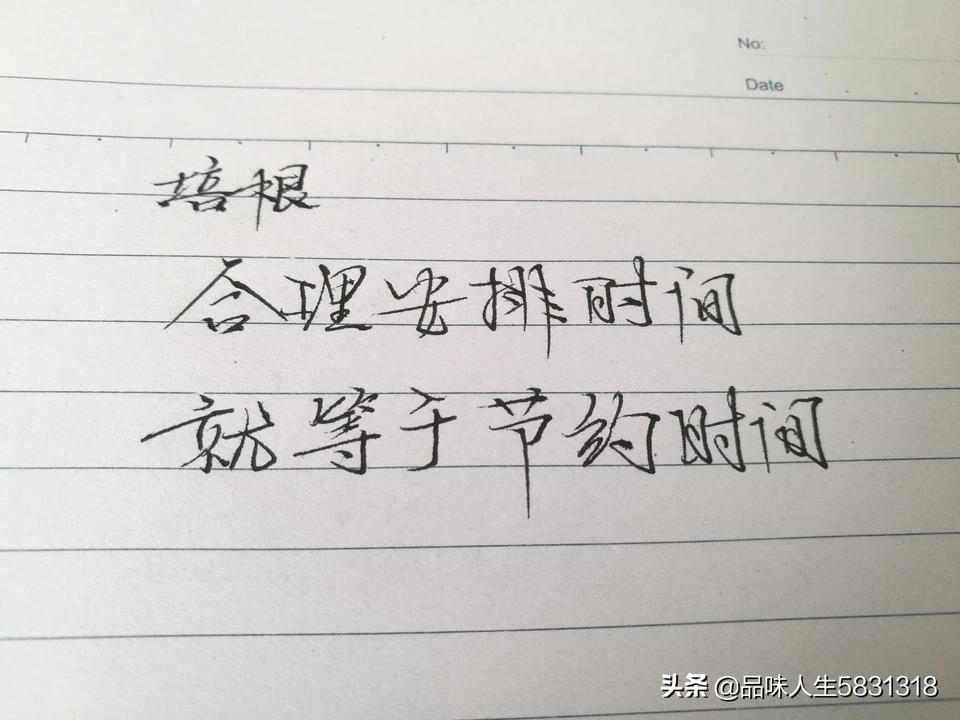 No:
Date
培根
合理安排时间
就等于节约时间
头条 @品味人生5831318